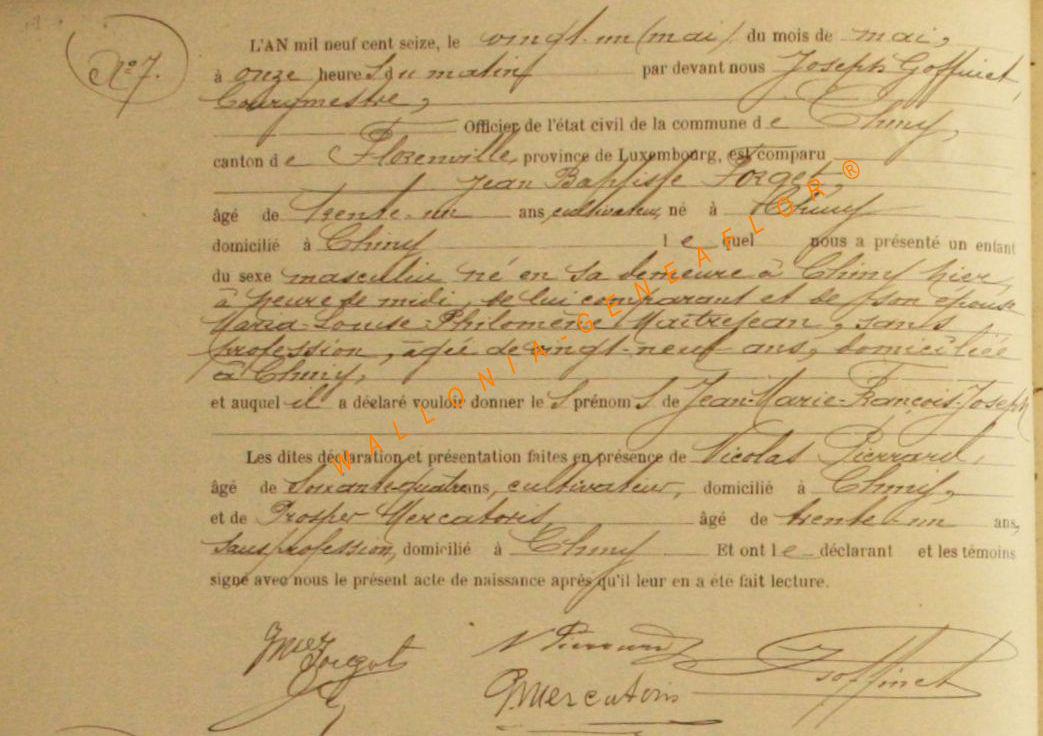 N° 7.
L'AN mil neuf cent seize, le vingt-un (mai) du mois de mai,
à onze heure s du matin par devant nous Joseph Goffinet,
Bourgmestre,
Officier de l'état civil de la commune d e Chiny,
canton d e Florenville, province de Luxembourg, est comparu
Jean Baptiste Forget,
âgé de trente-un ans, cultivateur, né à Chiny
domicilié à Chiny l e quel nous a présenté un enfant
du sexe masculin né en sa demeure à Chiny hier,
à heure de midi, de lui comparant et de son epouse
Maria-Louise-Philomène Maîtrejean, sans
profession, âgée de vingt-neuf ans, domiciliée
à Chiny,
et auquel il a déclaré vouloir donner le s prénom s de Jean-Marie-François-Joseph
Les dites déclaration et présentation faites en présence de Nicolas Pierrard,
âgé de soixante-quatre ans, cultivateur, domicilié à Chiny,
et de Prosper Mercatoris, âgé de trente-un ans,
sans profession, domicilié à Chiny Et ont l e déclarant et les témoins
signé avec nous le présent acte de naissance après qu'il leur en a été fait lecture.
Forget N Pierrard J Goffinet
P Mercatoris
WALLONIA-GENEAFLOR ®